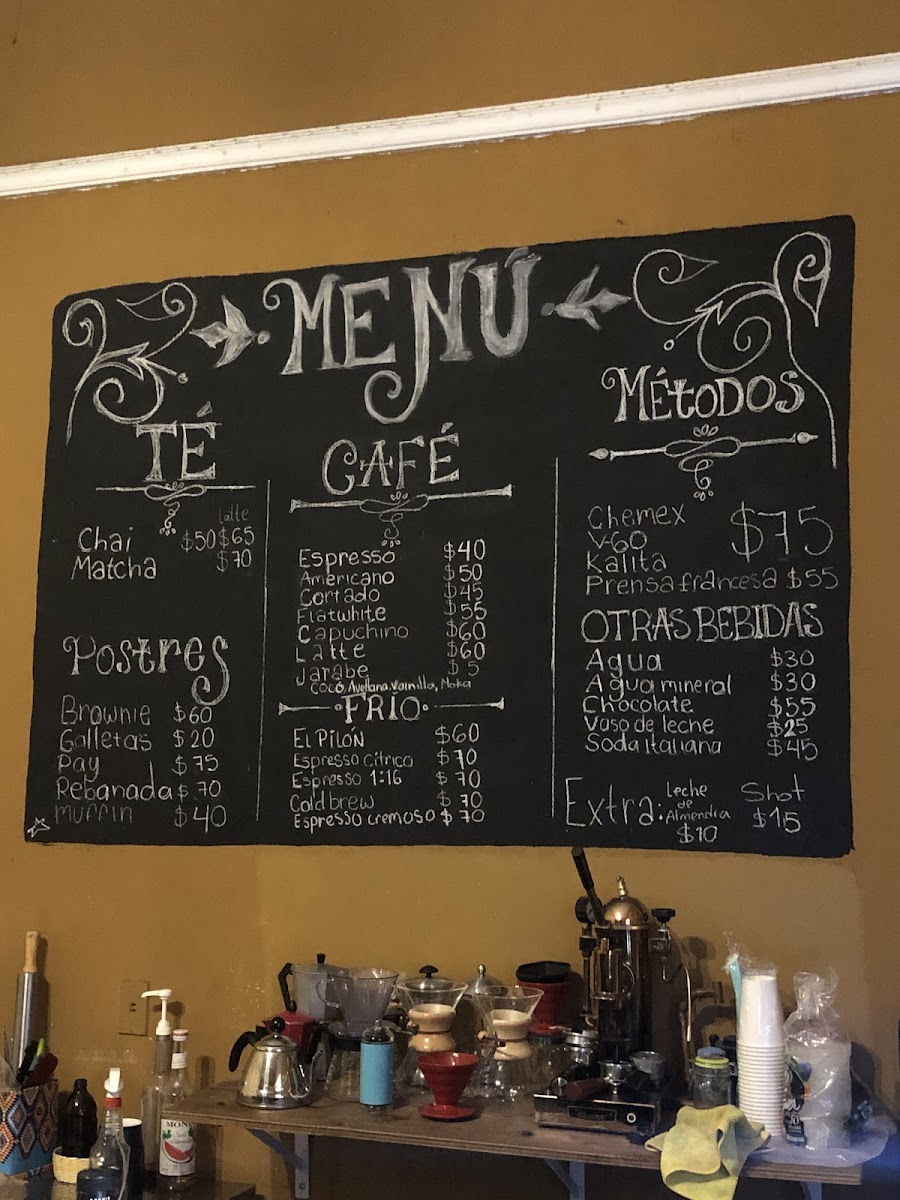 MENÚ
TÉ
Latte
Chai $50 $65
Matcha $70
Postres
Brownie $60
Galletas $20
Pay $75
Rebanada $70
Muffin $40
CAFÉ
Espresso $40
Americano $50
Cortado $45
Flatwhite $55
Capuchino $60
Latte $60
Jarabe $5
Coco, Avellana, Vainilla, Moka
FRÍO
EL PILÓN $60
Espresso cítrico $70
Espresso 1:16 $70
Cold brew $70
Espresso cremoso $70
MÉTODOS
Chemex
V-60 $75
Kalita
Prensa francesa $55
OTRAS BEBIDAS
Agua $30
Agua mineral $30
Chocolate $55
Vaso de leche $25
Soda Italiana $45
Extra: Leche de Almendra $10 Shot $15
MONIN